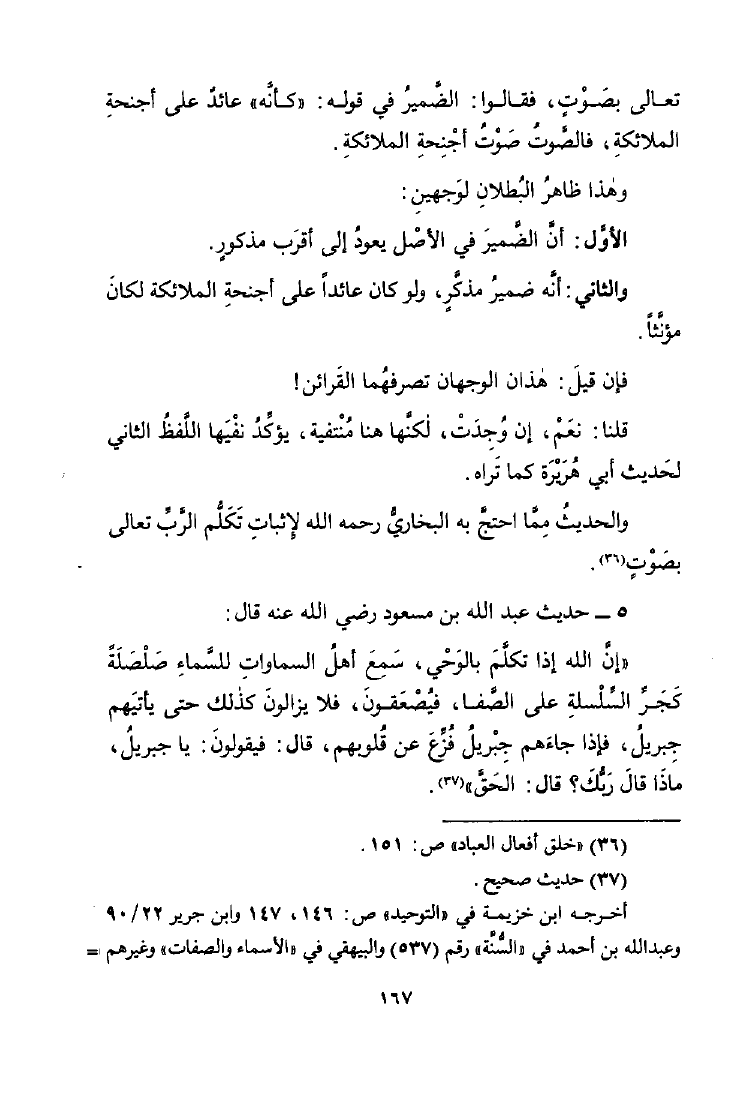 تعـالى بصَـوْتٍ، فقـالـوا: الضَّميرُ في قولـه: «كـأنَّه» عائدٌ على أجنحةِ
الملائكةِ، فالصَّوتُ صَوْتُ أجْنِحةِ الملائكةِ.
وهٰذا ظاهرُ البُطلانِ لوَجهينِ:
الأوَّل: أنَّ الضَّميرَ في الأصْل يعودُ إلى أقرَب مذكورٍ.
والثاني: أنَّه ضميرُ مذكَّرٍ، ولو كان عائداً على أجنحةِ الملائكة لكانَ
مؤنَّثاً.
فإن قيلَ: هٰذان الوجهان تصرفهُما القَرائن!
قلنا: نعَمْ، إن وُجِدَتْ، لٰكنَّها هنا مُنْتفية، يؤكِّدُ نفْيَها اللَّفظُ الثاني
لحَديث أبي هُرَيْرَة كما تَراه.
والحديثُ مِمَّا احتجَّ به البخاريُّ رحمه الله لإثباتِ تَكَلُّم الرَّبِّ تعالى
بصَوْتٍ(٣٦).
٥ ــ حديث عبد الله بن مسعود رضي الله عنه قال:
«إنَّ الله إذا تكلَّمَ بالوَحْيِ، سَمِعَ أهلُ السماواتِ للسَّماءِ صَلْصَلَةً
كَجَرِّ السِّلْسلةِ على الصَّفـا، فيُصْعَقـونَ، فلا يزالونَ كذٰلك حتى يأتيَهم
جِبريلُ، فإذا جاءَهم جِبْريلُ فُزِّعَ عن قُلوبهم، قال: فيقولونَ: يا جبريلُ،
ماذَا قالَ رَبُّكَ؟ قال: الحَقَّ»(٣٧).
(٣٦) «خلق أفعال العباد» ص: ١٥١.
(٣٧) حديث صحيح.
أخـرجـه ابن خزيمـة في «التوحيد» ص: ١٤٦، ١٤٧ وابن جرير ٢٢/ ٩٠
وعبدالله بن أحمد في «السُّنَّة» رقم (٥٣٧) والبيهقي في «الأسماء والصفات» وغيرهم =
١٦٧